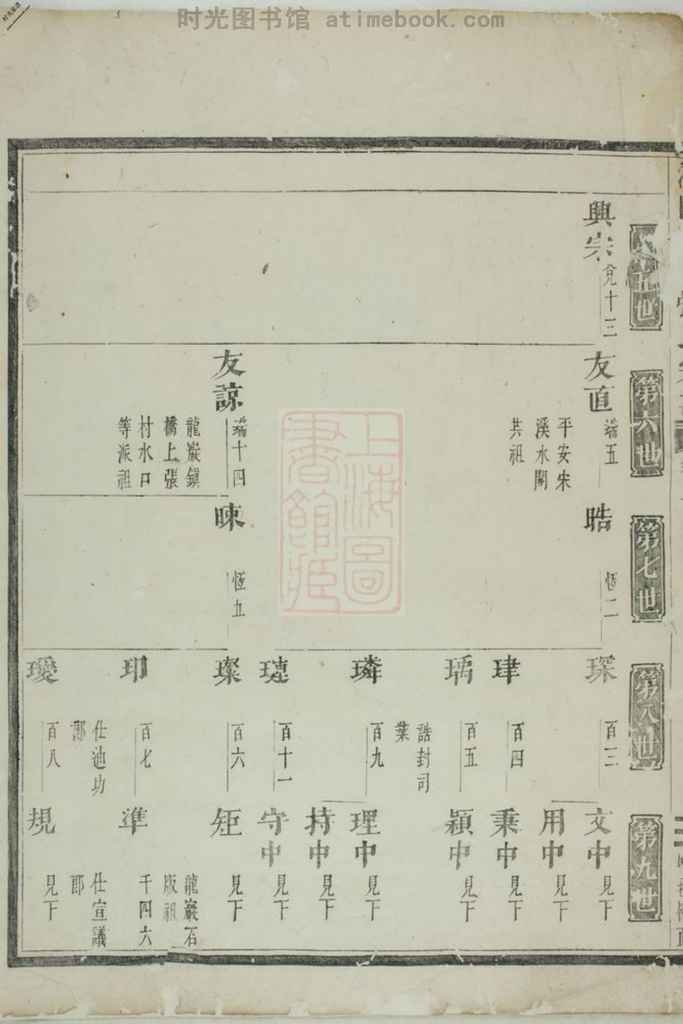 时光图书馆 atimebook.com
世
興宗
十三
第六世
友直
端五
平安朱
溪水閣
共祖
友諒
端十四
龍巖鎮
橋上張
村水口
等派祖
第七世
晧
恆二
暕
恆五
第八世
琛
百三
百四
瑀
百五
誥封司
業
璘
百九
璉
百十一
璨
百六
百七
仕迪功
郎
璦
百八
第九世
文中
見下
用中
見下
秉中
見下
潁中
見下
理中
見下
持中
見下
守中
見下
矩
見下
龍巖石
版祖
準
千四六
仕宣議
郎
規
見下
上海圖
書館藏